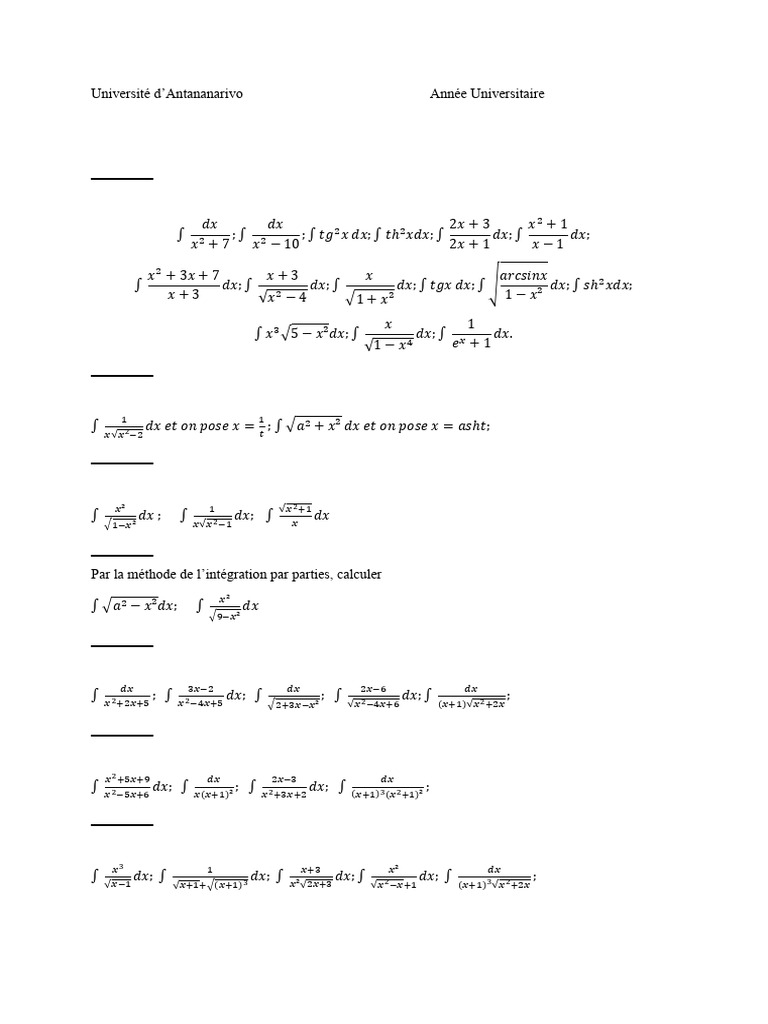 Université d'Antananarivo Année Universitaire
∫ dx/(x²+7) ; ∫ dx/(x²−10) ; ∫ tg²x dx; ∫ th²xdx; ∫ (2x+3)/(2x+1) dx; ∫ (x²+1)/(x−1) dx;
∫ (x²+3x+7)/(x+3) dx; ∫ (x+3)/√(x²−4) dx; ∫ x/√(1+x²) dx; ∫ tgx dx; ∫ √(arcsinx/(1−x²)) dx; ∫ sh²xdx;
∫ x³√(5−x²)dx; ∫ x/√(1−x⁴) dx; ∫ 1/(eˣ+1) dx.
∫ 1/(x√(x²−2)) dx et on pose x = 1/t ; ∫ √(a²+x²) dx et on pose x = asht;
∫ x²/√(1−x²) dx ; ∫ 1/(x√(x²−1)) dx; ∫ √(x²+1)/x dx
Par la méthode de l'intégration par parties, calculer
∫ √(a²−x²)dx; ∫ x²/√(9−x²) dx
∫ dx/(x²+2x+5) ; ∫ (3x−2)/(x²−4x+5) dx; ∫ dx/√(2+3x−x²) ; ∫ (2x−6)/√(x²−4x+6) dx; ∫ dx/((x+1)√(x²+2x)) ;
∫ (x²+5x+9)/(x²−5x+6) dx; ∫ dx/(x(x+1)²) ; ∫ (2x−3)/(x²+3x+2) dx; ∫ dx/((x+1)³(x²+1)²) ;
∫ x³/√(x−1) dx; ∫ 1/(√(x+1)+√((x+1)³)) dx; ∫ (x+3)/(x²√(2x+3)) dx; ∫ x²/(√(x²−x)+1) dx; ∫ dx/((x+1)³√(x²+2x)) ;